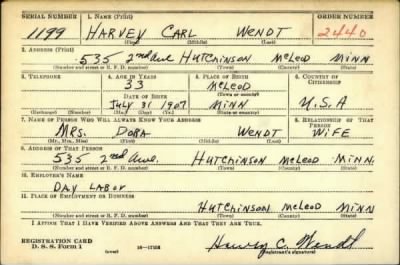 SERIAL NUMBER 1. NAME (Print) ORDER NUMBER
1199 HARVEY CARL WENDT 2440
(First) (Middle) (Last)
2. ADDRESS (Print)
535 2nd Ave HUTCHINSON McLEOD MINN
(Number and street or R. F. D. number) (Town) (County) (State)
3. TELEPHONE 4. AGE IN YEARS 5. PLACE OF BIRTH 6. COUNTRY OF CITIZENSHIP
33 McLEOD
DATE OF BIRTH (Town or county)
JULY 31 1907 MINN U.S.A
(Exchange) (Number) (Mo.) (Day) (Yr.) (State or country)
7. NAME OF PERSON WHO WILL ALWAYS KNOW YOUR ADDRESS 8. RELATIONSHIP OF THAT PERSON
MRS. DORA WENDT WIFE
(Mr., Mrs., Miss) (First) (Middle) (Last)
9. ADDRESS OF THAT PERSON
535 2nd Ave. HUTCHINSON McLEOD MINN.
(Number and street or R. F. D. number) (Town) (County) (State)
10. EMPLOYER'S NAME
DAY LABOR
11. PLACE OF EMPLOYMENT OR BUSINESS
HUTCHINSON McLEOD MINN
(Number and street or R. F. D. number) (Town) (County) (State)
I AFFIRM THAT I HAVE VERIFIED ABOVE ANSWERS AND THAT THEY ARE TRUE.
REGISTRATION CARD
D. S. S. Form 1 Harvey C. Wendt
(Registrant's signature)